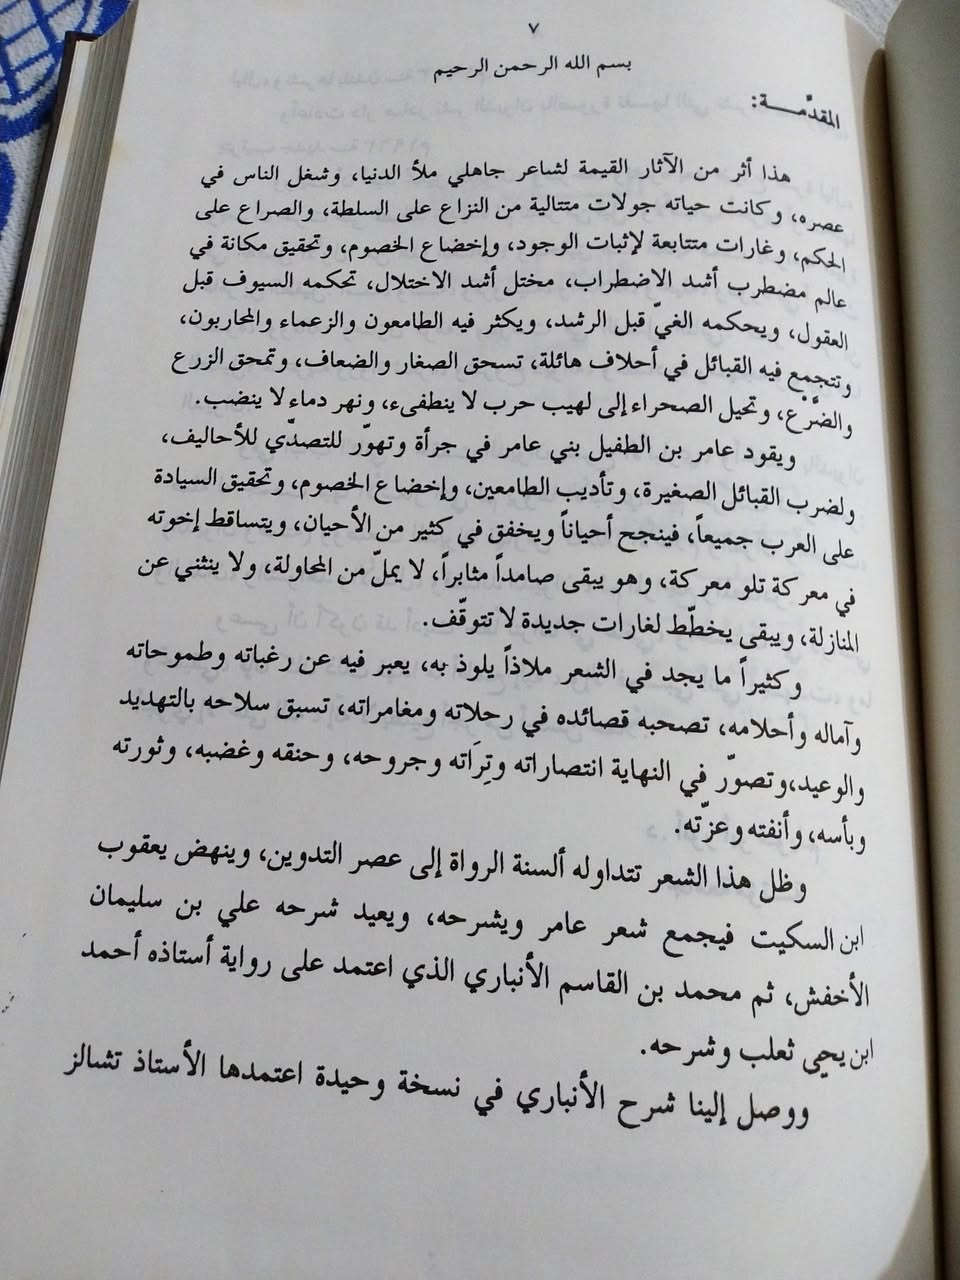 ٧
بسم الله الرحمن الرحيم
المقدَّمـــة:
هذا أثر من الآثار القيمة لشاعر جاهلي ملأ الدنيا، وشغل الناس في
عصره، وكانت حياته جولات متتالية من النزاع على السلطة، والصراع على
الحكم، وغارات متتابعة لإثبات الوجود، وإخضاع الخصوم، وتحقيق مكانة في
عالم مضطرب أشد الاضطراب، مختل أشد الاختلال، تحكمه السيوف قبل
العقول، ويحكمه الغيّ قبل الرشد، ويكثر فيه الطامعون والزعماء والمحاربون،
وتتجمع فيه القبائل في أحلاف هائلة، تسحق الصغار والضعاف، وتمحق الزرع
والضَّرْع، وتحيل الصحراء إلى لهيب حرب لا ينطفىء، ونهر دماء لا ينضب.
ويقود عامر بن الطفيل بني عامر في جرأة وتهوّر للتصدّي للأحاليف،
ولضرب القبائل الصغيرة، وتأديب الطامعين، وإخضاع الخصوم، وتحقيق السيادة
على العرب جميعاً، فينجح أحياناً ويخفق في كثير من الأحيان، ويتساقط إخوته
في معركة تلو معركة، وهو يبقى صامداً مثابراً، لا يملّ من المحاولة، ولا ينثني عن
المنازلة، ويبقى يخطّط لغارات جديدة لا تتوقّف.
وكثيراً ما يجد في الشعر ملاذاً يلوذ به، يعبر فيه عن رغباته وطموحاته
وآماله وأحلامه، تصحبه قصائده في رحلاته ومغامراته، تسبق سلاحه بالتهديد
والوعيد،وتصوّر في النهاية انتصاراته وتِرَاته وجروحه، وحنقه وغضبه، وثورته
وبأسه، وأنفته وعزّته.
وظل هذا الشعر تتداوله ألسنة الرواة إلى عصر التدوين، وينهض يعقوب
ابن السكيت فيجمع شعر عامر ويشرحه، ويعيد شرحه علي بن سليمان
الأخفش، ثم محمد بن القاسم الأنباري الذي اعتمد على رواية أستاذه أحمد
ابن يحيى ثعلب وشرحه.
ووصل إلينا شرح الأنباري في نسخة وحيدة اعتمدها الأستاذ تشالز